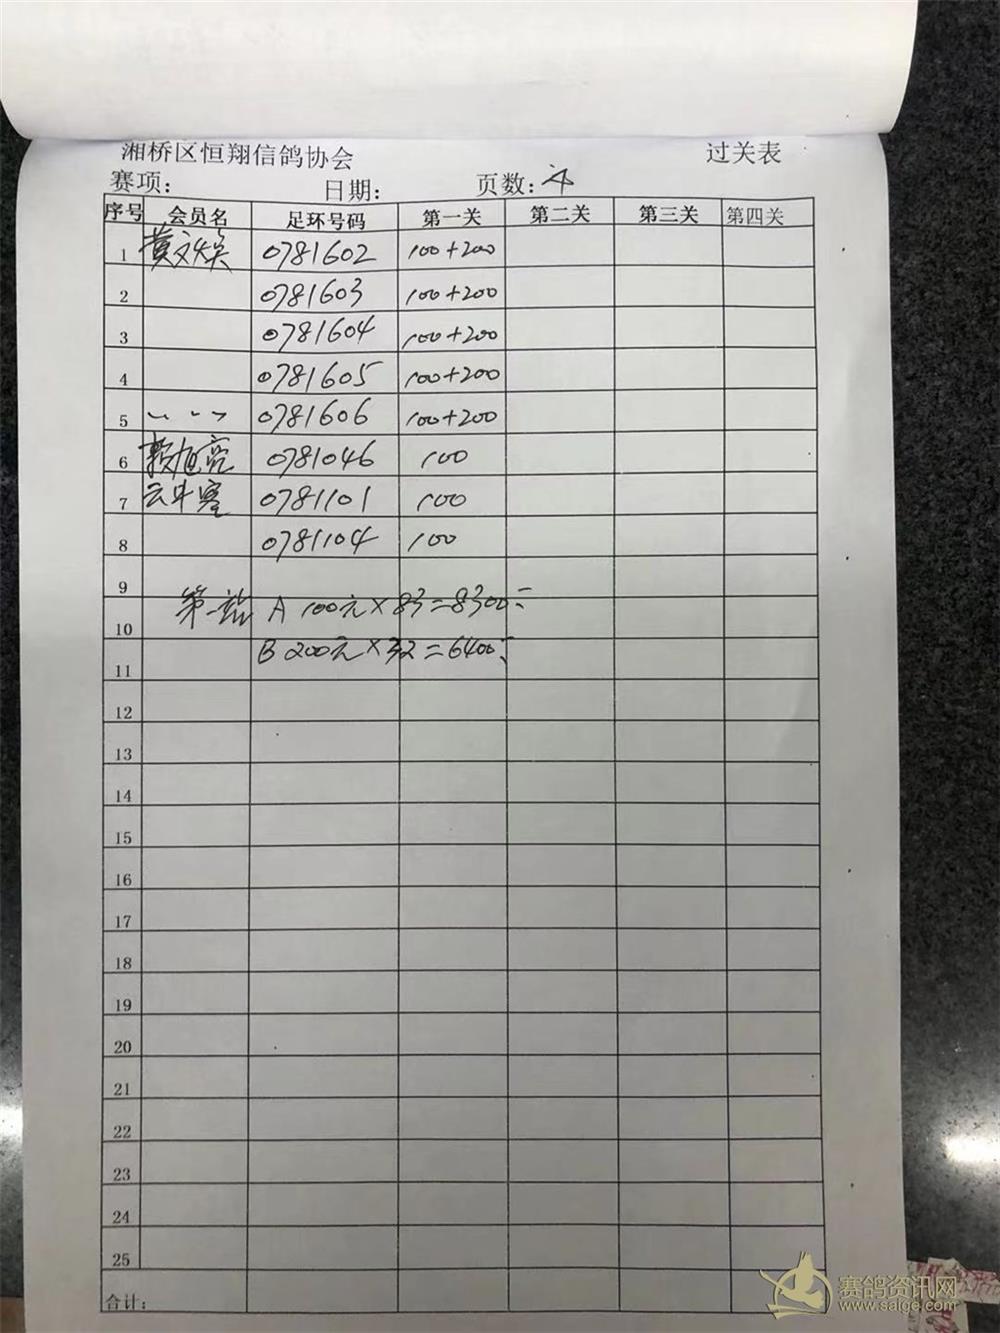 湘桥区恒翔信鸽协会 过关表
赛项: 日期: 页数:
序号 会员名 足环号码 第一关 第二关 第三关 第四关
1 黄文焕 0781602 100+200
2 0781603 100+200
3 0781604 100+200
4 0781605 100+200
5 0781606 100+200
6 赖旭亮 0781046 100
7 云中寨 0781101 100
8 0781104 100
9
第一站 A 100元×83=8300
10
B 200元×32=6400
11
12
13
14
15
16
17
18
19
20
21
22
23
24
25
合计:
赛鸽资讯网
www.saige.com